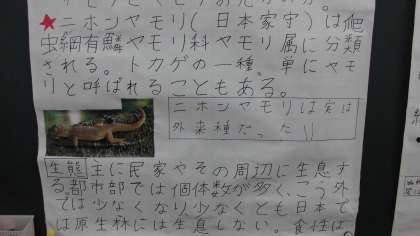 ★ニホンヤモリ(日本家守)は爬
虫綱有鱗ヤモリ科ヤモリ属に分類
される。トカゲの一種。単にヤモ
リと呼ばれることもある。
ニホンヤモリは実は
外来種だった!!
生態 主に民家やその周辺に生息す
る。都市部では個体数が多く、こう外
では少なくなり少なくとも日本で
は原生林には生息しない。食性は